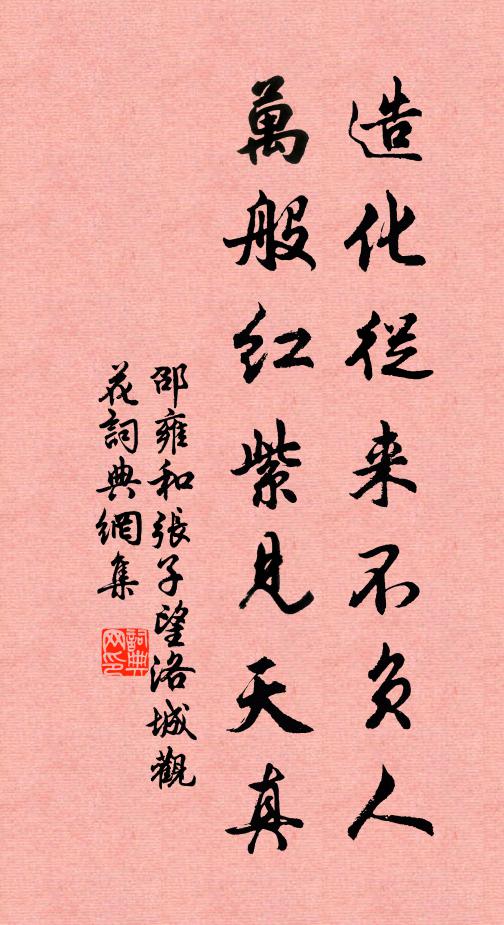 造化從来不负人
萬般红紫見天真
邵雍和張子望洛城觀
花詞典網集
詞典网印